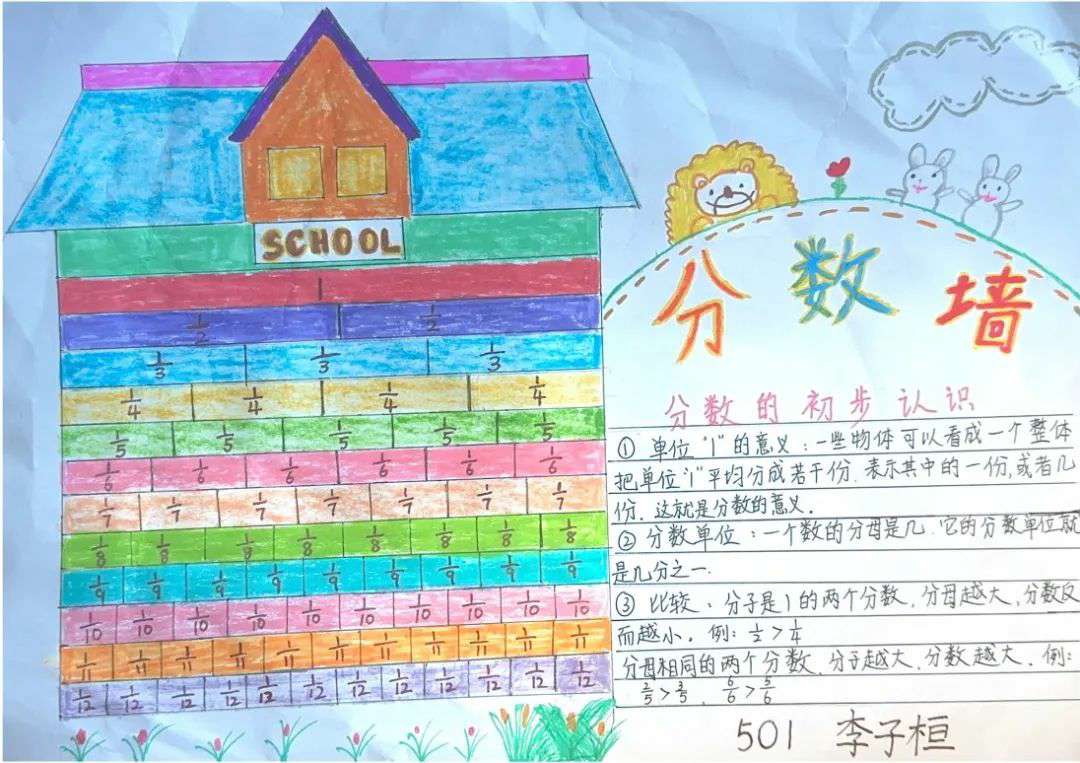 SCHOOL
1
1/2 1/2
1/3 1/3 1/3
1/4 1/4 1/4 1/4
1/5 1/5 1/5 1/5 1/5
1/6 1/6 1/6 1/6 1/6 1/6
1/7 1/7 1/7 1/7 1/7 1/7 1/7
1/8 1/8 1/8 1/8 1/8 1/8 1/8 1/8
1/9 1/9 1/9 1/9 1/9 1/9 1/9 1/9 1/9
1/10 1/10 1/10 1/10 1/10 1/10 1/10 1/10 1/10 1/10
1/11 1/11 1/11 1/11 1/11 1/11 1/11 1/11 1/11 1/11 1/11
1/12 1/12 1/12 1/12 1/12 1/12 1/12 1/12 1/12 1/12 1/12 1/12
分数墙
分数的初步认识
① 单位"1"的意义：一些物体可以看成一个整体
把单位"1"平均分成若干份．表示其中的一份,或者几
份．这就是分数的意义．
② 分数单位：一个数的分母是几．它的分数单位就
是几分之一．
③ 比较：分子是1的两个分数，分母越大，分数反
而越小．例：1/2 > 1/4
分母相同的两个分数．分子越大，分数越大．例：
6/6 > 5/6
501 李子桓